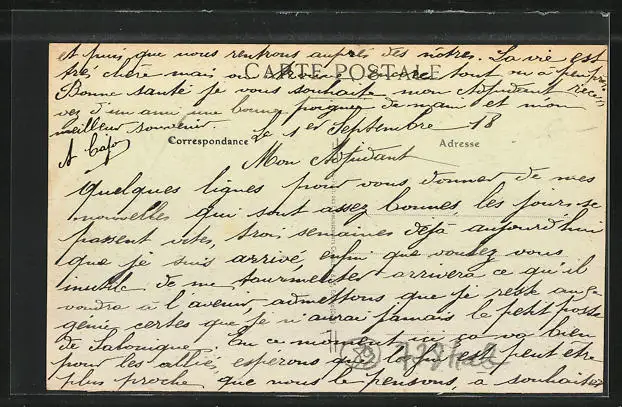 A puis que nous rentrons auprès des nôtres. La vie est
très chère mais on trouve encore tout ou à peu près
CARTE POSTALE
Bonne santé je vous souhaite mon Adjudant rece-
vez d'un ami une bonne poignée de main et mon
meilleur souvenir.
Correspondance
Adresse
Le 1er Septembre 18
Mon Adjudant
Quelques lignes pour vous donner de mes
nouvelles qui sont assez bonnes, les jours se
passent vites, trois semaines déjà aujourd'hui
que je suis arrivé, enfin que voulez vous
inutile de me tourmenter arrivera ce qu'il
voudra à l'avenir, admettons que je reste au
génie certes que je n'aurai jamais le petit poste
de Salonique. En ce moment ici ça va bien
pour les alliés, espérons que la fin est peut être
plus proche que nous le pensons, a souhaiter